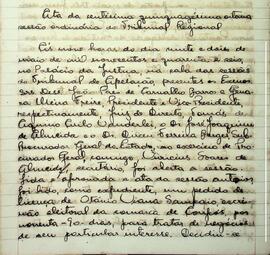 Acta da centésima quinquagésima oitava
sessão ordinária do Tribunal Regional
Às nove horas do dia vinte e dois de
maio de mil novecentos e quarenta e seis,
no Palácio da Justiça, na sala das sessões
do Tribunal de Apelação, presentes os Excelen
Srs. Des. João Pais de Carvalho Barros e Gena
ro Freire, Presidente e Vice-Presidente,
respectivamente, juiz de Direito
e Dr. José Joaquim
de Almeida e o Dr. Ferreira Sub-
Procurador Geral do Estado, no exercicio de Pro-
curador Geral, comigo, Soares de
Almeida, secretário, foi aberta a sessão.
foi lida e aprovada a ata da sessão anterior
foi lido, como expediente, um pedido de
licença de Viana Sampaio escri-
vão eleitoral da comarca de por
noventa - 90 - dias, para tratar de negócios
de seu particular interesse. Decidiu-